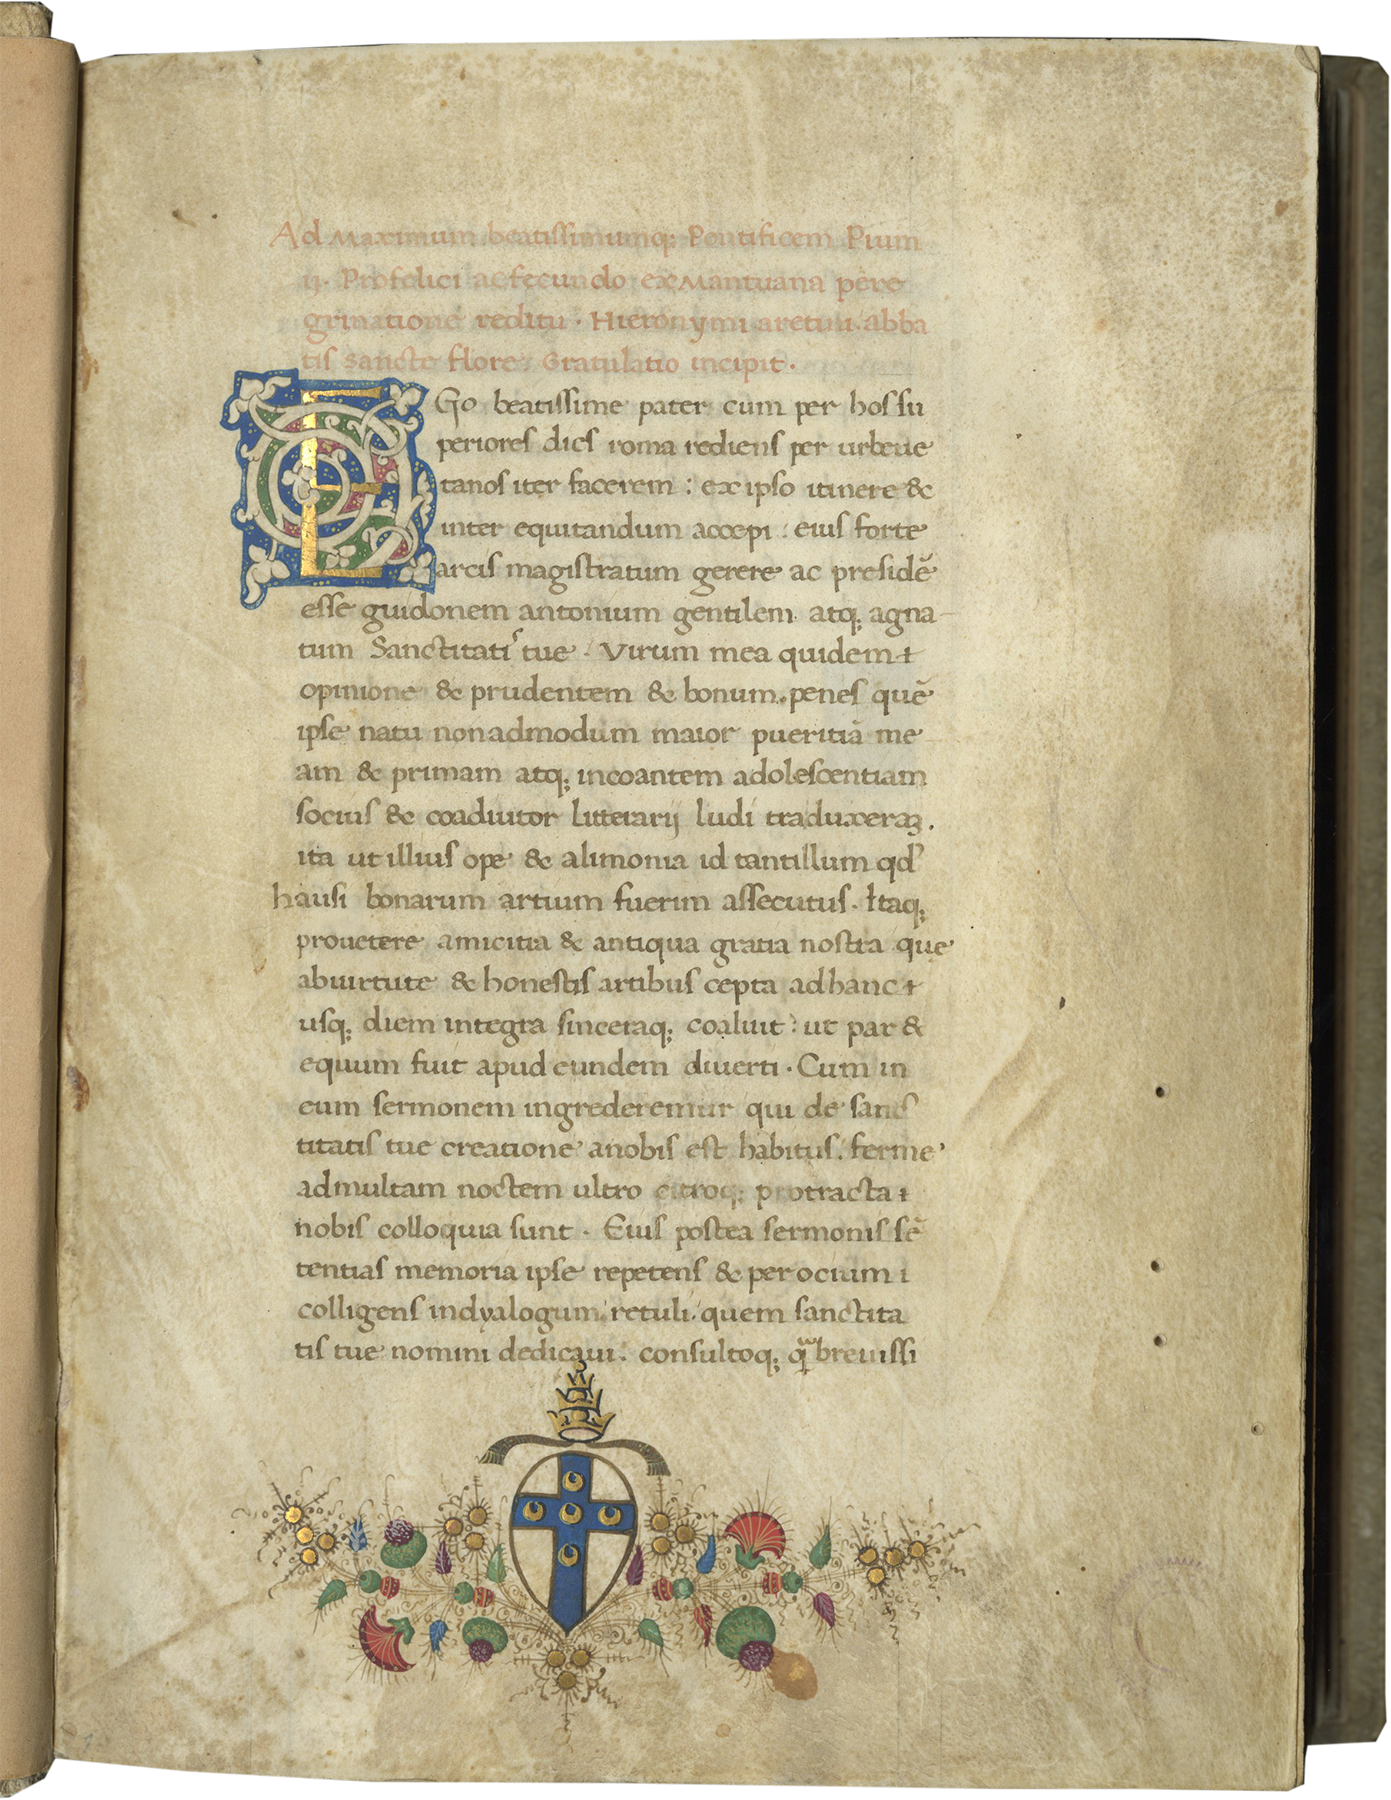 Ad Maximum beatissimumq; Pontificem Pium
ij. Pro felici ac fecundo ex Mantuana pere
grinatione reditu. Hieronymi aretini. abba
tis Sancte flore. Gratulatio incipit.
EGo beatissime pater cum per hos su
periores dies roma rediens per urbeue
tanos iter facerem: ex ipso itinere &
inter equitandum accepi: eius forte
arcis magistratum gerere ac presidē
esse guidonem antonium gentilem atq; agna
tum Sanctitatis tue. Virum mea quidem
opinione & prudentem & bonum. penes quē
ipse natu non admodum maior pueritiā me
am & primam atq; incoantem adolescentiam
socius & coadiutor litterarij ludi traduxeraꝫ.
ita ut illius ope & alimonia id tantillum qd'
hausi bonarum artium fuerim assecutus. Itaq;
prouetere amicitia & antiqua gratia nostra que
abuirtute & honestis artibus cepta ad hanc
usq; diem integra sinceraq; coaluit: ut par &
equum fuit apud eundem diuerti. Cum in
eum sermonem ingrederemur qui de sanc
titatis tue creatione anobis est habitus. ferme
admultam noctem ultro citroq; protracta
nobis colloquia sunt. Eius postea sermonis sē
tentias memoria ipse repetens & per ocium
colligens indyalogum retuli. quem sanctita
tis tue nomini dedicaui. consultoq; breuissi